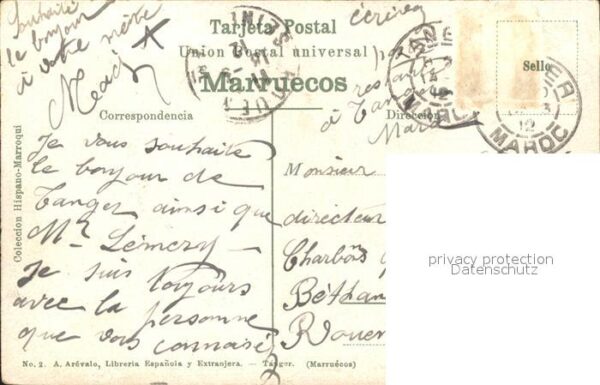 Souhaité
le bonjour
à votre mère
écrivez
poste
restante
à Tanger
Maroc
Tarjeta Postal
Union Postal universal
Marruecos
Sello
TANGER
MAROC
12
Correspondencia
Dirección
Je vous souhaite
le bonjour de
Tanger ainsi que
Mr Lémery
Je suis toujours
avec la personne
que vous connaissez
Monsieur
directeur
Charbons
Béthan
Rouen
Coleccion Hispano-Marroqui
No. 2. A. Arévalo, Libreria Española y Extranjera. — Tánger. (Marruécos)
privacy protection
Datenschutz